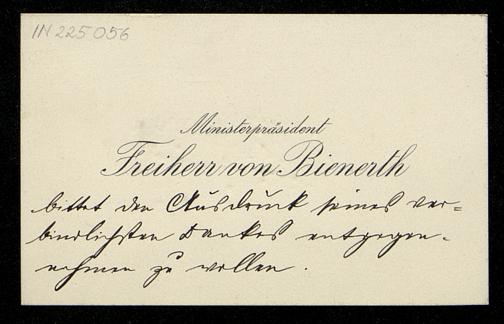 IN 225056
Ministerpräsident
Freiherr von Bienerth
bittet den Ausdruck seines ver=
bindlichsten Dankes entgegen=
nehmen zu wollen.